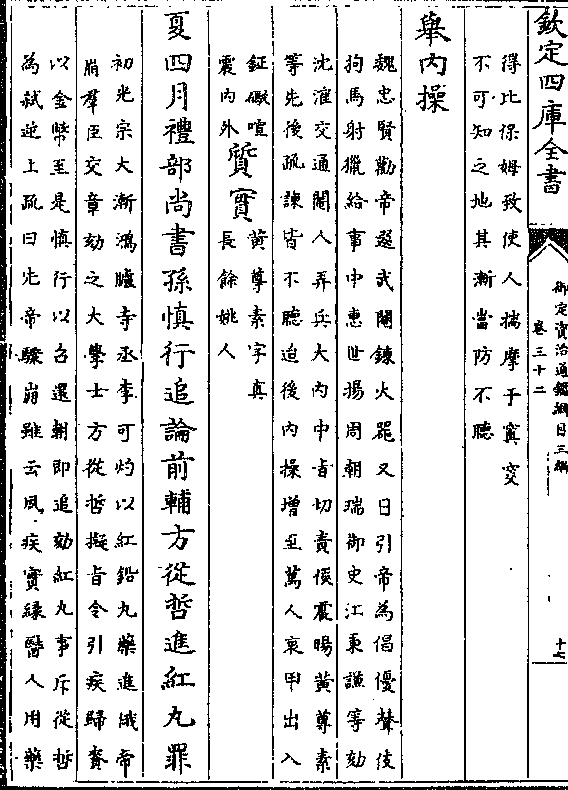 欽定四庫全書
御定資治通鑑綱目三編
卷三十二
十七
得比保姆致使人揣摩于窅窔
不可知之地其漸當防不聽
舉內操
魏忠賢勸帝選武閹鍊火器又日引帝為倡優聲伎
狗馬射獵給事中惠世揚周朝瑞御史江秉謙等劾
沈㴶交通閹人弄兵大內中旨切責侯震暘黃尊素
等先後疏諫皆不聽迨後內操增至萬人衷甲出入
鉦礮喧
震內外
質實
黃尊素字真
長餘姚人
夏四月禮部尚書孫慎行追論前輔方從哲進紅丸罪
初光宗大漸鴻臚寺丞李可灼以紅鉛丸藥進俄帝
崩羣臣交章劾之大學士方從哲擬旨令引疾歸賚
以金幣至是慎行以召還朝即追劾紅丸事斥從哲
為弒逆上疏曰先帝驟崩雖云夙疾實緣醫人用藥